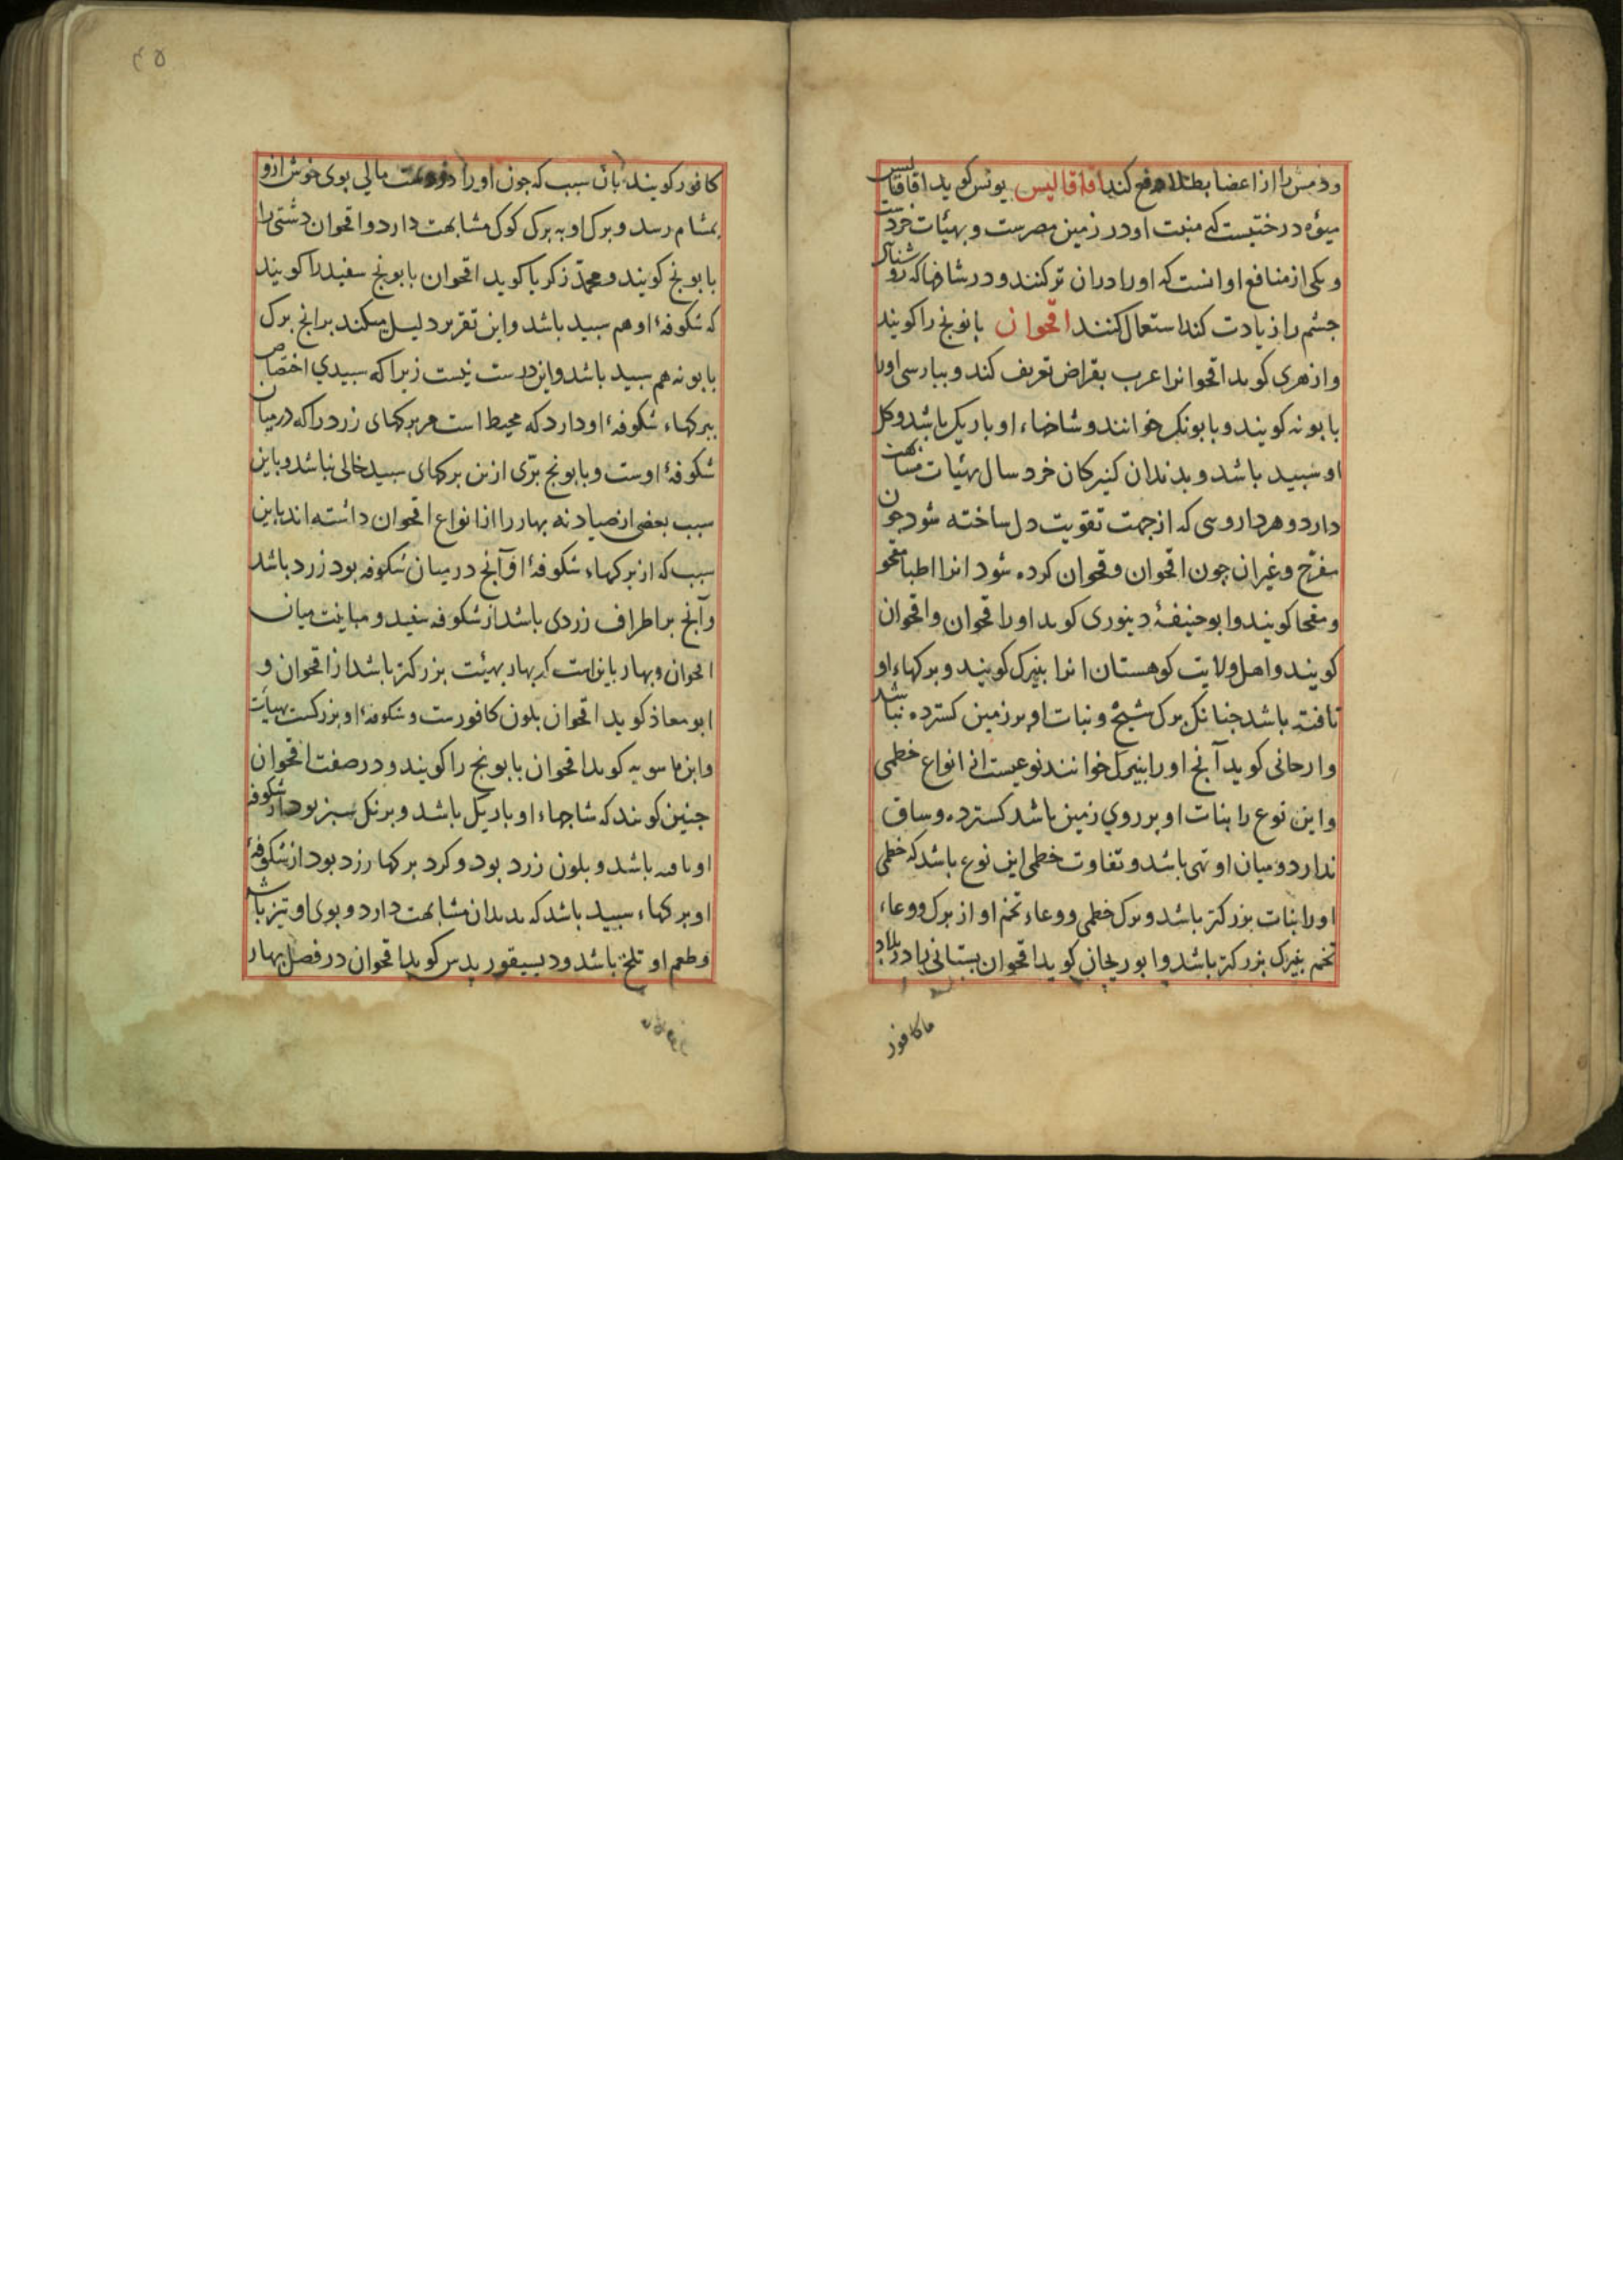 ورمش را از اعضا بطلا دفع کند اقاقالیس یونس کوید اقاقالیس
میوه درختیست کی منبت او در زمین مصرست و بهیئات خردست
و یکی از منافع او انست که او را دران تر کنند و در شافها که روشنائی
جشم را زیادت کند استعمال کنند اقحوان بابونج را کویند
و ازهری کوید اقحوانرا عرب بقراض تعریف کند و ببارسی اورا
بابونه کویند و بابونک خوانند و شاخهاء او باریک باشد و کل
او سبید باشد و بدندان کنیزکان خرد سال بهیئات مشابهت
دارد و هر داروئی که از جهت تقویت دل ساخته شود جون
مفرح و غیران چون اقحوان و قحوان کرده شود انرا اطبا مقحو
و مقحا کویند و ابو حنیفهٔ دینوری کوید او را قحوان و اقحوان
کویند و اهل ولایت کوهستان انرا بنیرک کویند و برکهاء او
تافته باشد جنانک برک شیح و نبات او بر زمین کسترده نباشد
و ارجانی کوید آنج اورا بنیرک خوانند نوعیست از انواع خطمی
و این نوع را نبات او بر روی زمین باشد کسترده و ساق
ندارد و میان او تهی باشد و تفاوت خطمی این نوع باشد که خطمی
اورا نبات بزرکتر باشد و برک خطمی و وعاء تخم او از برک و وعاء
تخم بنیرک بزرکتر باشد و ابو ریحان کوید اقحوان بستانی را در بلاد
ما کافور
۴۵
کافور کویند بان سبب که جون اورا در دست مالی بوی خوش ازو
بمشام رسد و برک او به برک کوک مشابهت دارد و اقحوان دشتی را
بابونج کویند و محمد زکریا کوید اقحوان بابونج سفید را کویند
که شکوفهٔ او هم سبید باشد و این تقریر دلیل میکند برانج برک
بابونه هم سبید باشد و این درست نیست زیرا که سبیدی اختصاص
ببرکهاء شکوفهٔ او دارد که محیط است مر برکهای زرد را که درمیان
شکوفهٔ اوست و بابونج برّی ازین برکهای سبید خالی نباشد و باین
سبب بعضی از صیادنه بهار را از انواع اقحوان دانسته اند باین
سبب که از برکهاء شکوفهٔ او آنج درمیان شکوفه بود زرد باشد
و آنج بر اطراف زردی باشد از شکوفه سفید و مباینت میان
اقحوان و بهار باین است که بهار بهیئت بزرکتر باشد از اقحوان و
ابو معاذ کوید اقحوان بلون کافورست و شکوفهٔ او بزرکست بهیأت
و ابن ماسویه کوید اقحوان بابونج را کویند و در صفت اقحوان
جنین کویند که شاخهاء او باریک باشد و برنک سبز بود و شکوفه
او تافته باشد و بلون زرد بود و کرد برکها زرد بود از شکوفهٔ
او برکهاء سبید باشد که بدندان مشابهت دارد و بوی او تیز باشد
و طعم او تلخ باشد و دیسیقوریدس کوید اقحوان در فصل بهار